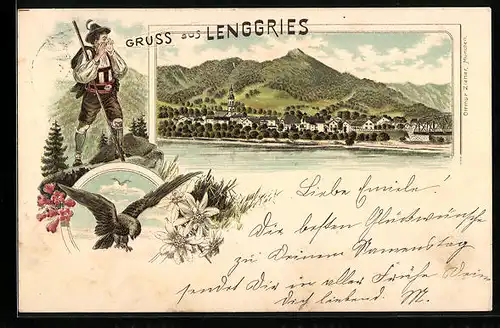 GRUSS aus LENGGRIES
Ottmar Zieher, München.
Liebe Emilie!
Die besten Glückwünsche
zu Deinem Namenstag
sendet Dir in aller Frühe Dein
Dich liebend. M.